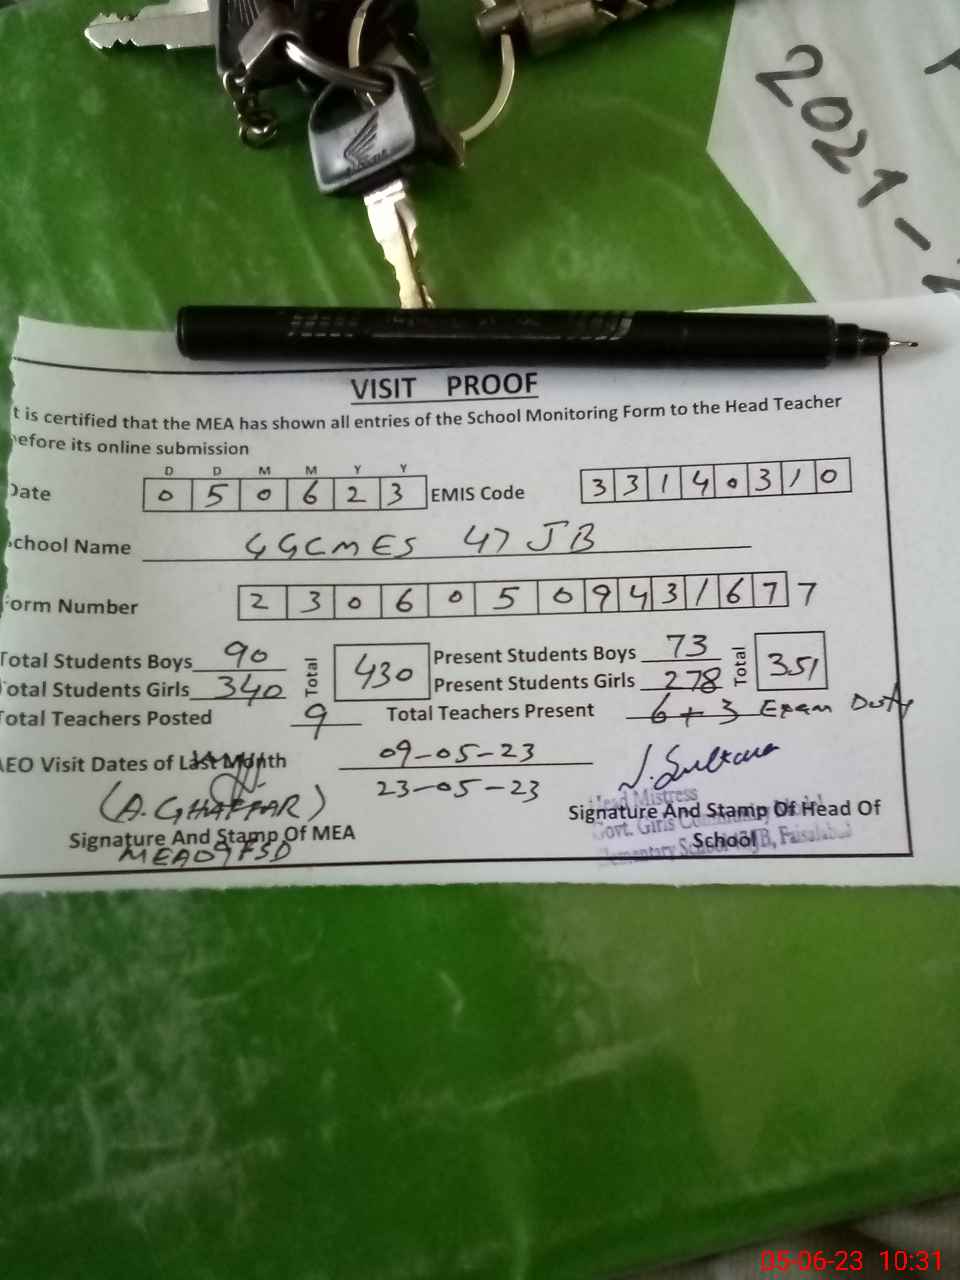 2021-
VISIT PROOF
t is certified that the MEA has shown all entries of the School Monitoring Form to the Head Teacher
efore its online submission
D D M M Y Y
Date 0 5 0 6 2 3 EMIS Code 3 3 1 4 0 3 1 0
School Name GGCMES 47 JB
Form Number 2 3 0 6 0 5 0 9 4 3 1 6 7 7
Total Students Boys 90 Total 430 Present Students Boys 73 Total 351
Total Students Girls 340 Present Students Girls 278
Total Teachers Posted 9 Total Teachers Present 6+3 Exam Duty
AEO Visit Dates of Last Month 09-05-23
23-05-23
(A. GHAFFAR) J. Sultana
Signature And Stamp Of MEA Signature And Stamp Of Head Of
School
MEA09FSD
Head Mistress
Govt. Girls Community Model
Elementary School 47JB, Faisalabad
05-06-23 10:31